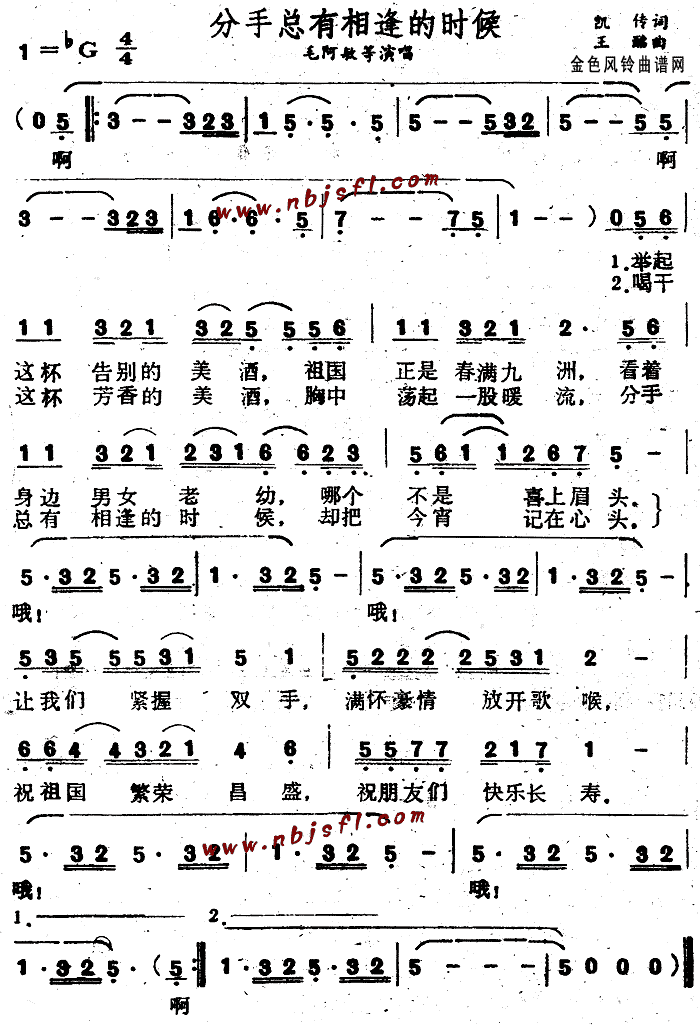 分手总有相逢的时候
1=♭G 4/4
凯 传词
毛阿敏等演唱
金色风铃曲谱网
(0 5 ‖: 3 - - 323 | 1 5·5·5 | 5 - - 532 | 5 - - 5 5
啊 啊
www.nbjsfl.com
3 - - 323 | 1 6·6·5 | 7 - - 75 | 1 - - ) 0 56
1.举起
2.喝干
11 321 325 556 | 11 321 2· 56
这杯 告别的 美 酒, 祖国 正是 春满九 洲, 看着
这杯 芳香的 美 酒, 胸中 荡起 一股暖 流, 分手
11 321 2316 623 | 561 1267 5 -
身边 男女 老 幼, 哪个 不是 喜上眉 头.
总有 相逢的 时 候, 却把 今宵 记在心 头.
5·32 5·32 | 1·32 5 - | 5·32 5·32 | 1·32 5 - |
哦! 哦!
535 5531 5 1 | 5222 2531 2 - |
让我们 紧握 双 手, 满怀豪情 放开歌 喉,
664 4321 4 6 | 5577 217 1 - |
祝祖国 繁荣 昌 盛, 祝朋友们 快乐长 寿.
www.nbjsfl.com
5·32 5·32 | 1·32 5 - | 5·32 5·32 |
哦! 哦!
1. 2.
1·32 5·(5 :‖ 1·32 5·32 | 5 - - - | 5 0 0 0 )‖
啊